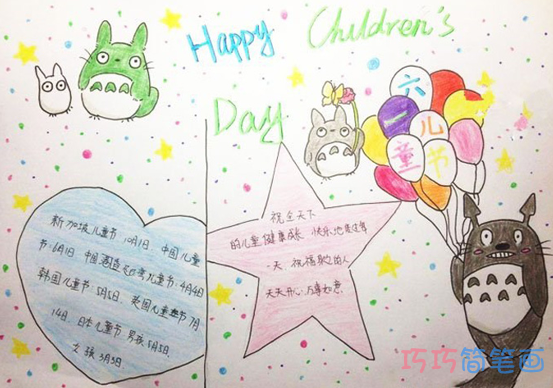 Happy Children's
Day
六一儿童节
新加坡儿童节10月1日, 中国儿童
节:6月1日 中国香港、台湾儿童节:4月4日
韩国儿童节:5月5日、英国儿童节7月
14日、日本儿童节:男孩5月5日、
女孩3月3日.
祝全天下
的儿童健康成长 快乐地度过每
一天 祝福
天天开心.万事如意.
巧巧简笔画